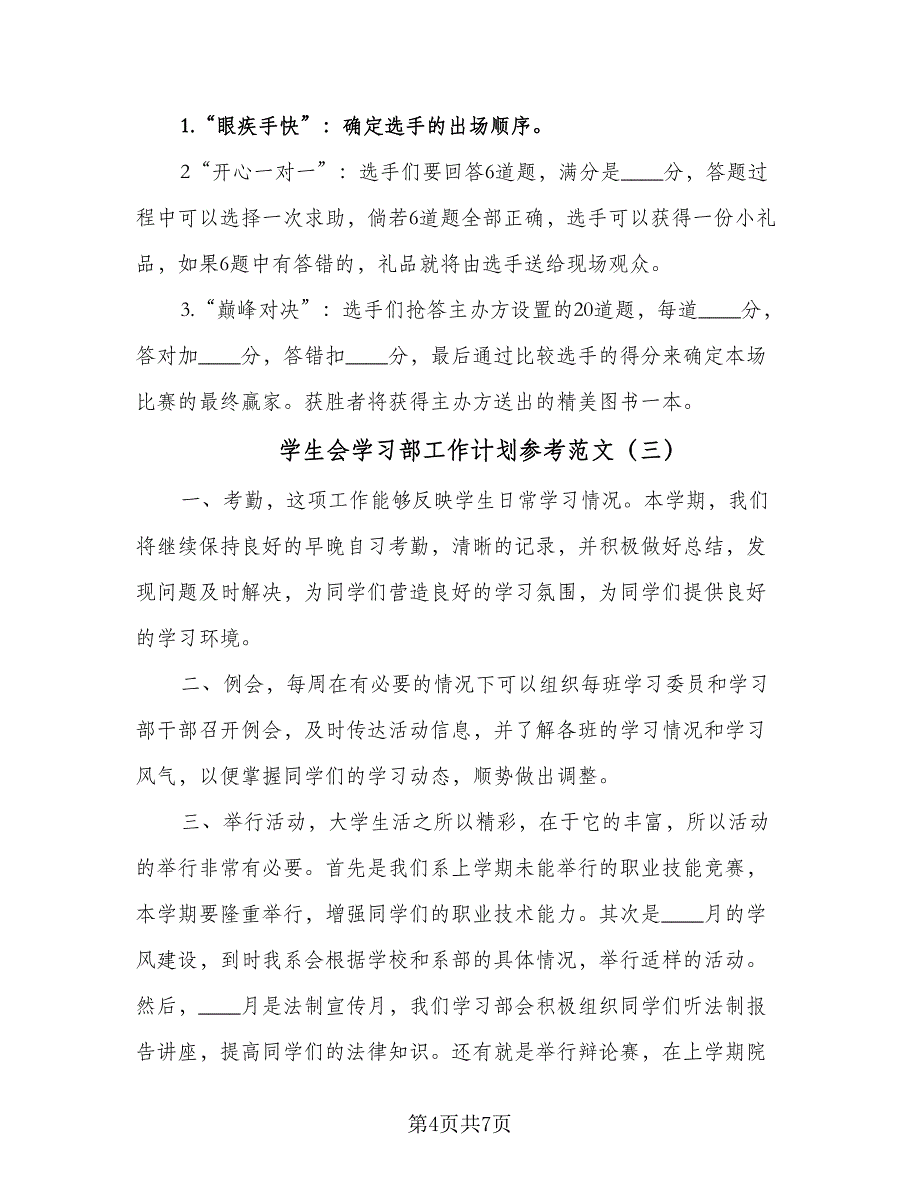 1.“眼疾手快”：确定选手的出场顺序。
2“开心一对一”：选手们要回答6道题，满分是____分，答题过
程中可以选择一次求助，倘若6道题全部正确，选手可以获得一份小礼
品，如果6题中有答错的，礼品就将由选手送给现场观众。
3.“巅峰对决”：选手们抢答主办方设置的20道题，每道____分，
答对加____分，答错扣____分，最后通过比较选手的得分来确定本场
比赛的最终赢家。获胜者将获得主办方送出的精美图书一本。
学生会学习部工作计划参考范文（三）
一、考勤，这项工作能够反映学生日常学习情况。本学期，我们
将继续保持良好的早晚自习考勤，清晰的记录，并积极做好总结，发
现问题及时解决，为同学们营造良好的学习氛围，为同学们提供良好
的学习环境。
二、例会，每周在有必要的情况下可以组织每班学习委员和学习
部干部召开例会，及时传达活动信息，并了解各班的学习情况和学习
风气，以便掌握同学们的学习动态，顺势做出调整。
三、举行活动，大学生活之所以精彩，在于它的丰富，所以活动
的举行非常有必要。首先是我们系上学期未能举行的职业技能竞赛，
本学期要隆重举行，增强同学们的职业技术能力。其次是____月的学
风建设，到时我系会根据学校和系部的具体情况，举行适样的活动。
然后，____月是法制宣传月，我们学习部会积极组织同学们听法制报
告讲座，提高同学们的法律知识。还有就是举行辩论赛，在上学期院
第4页共7页